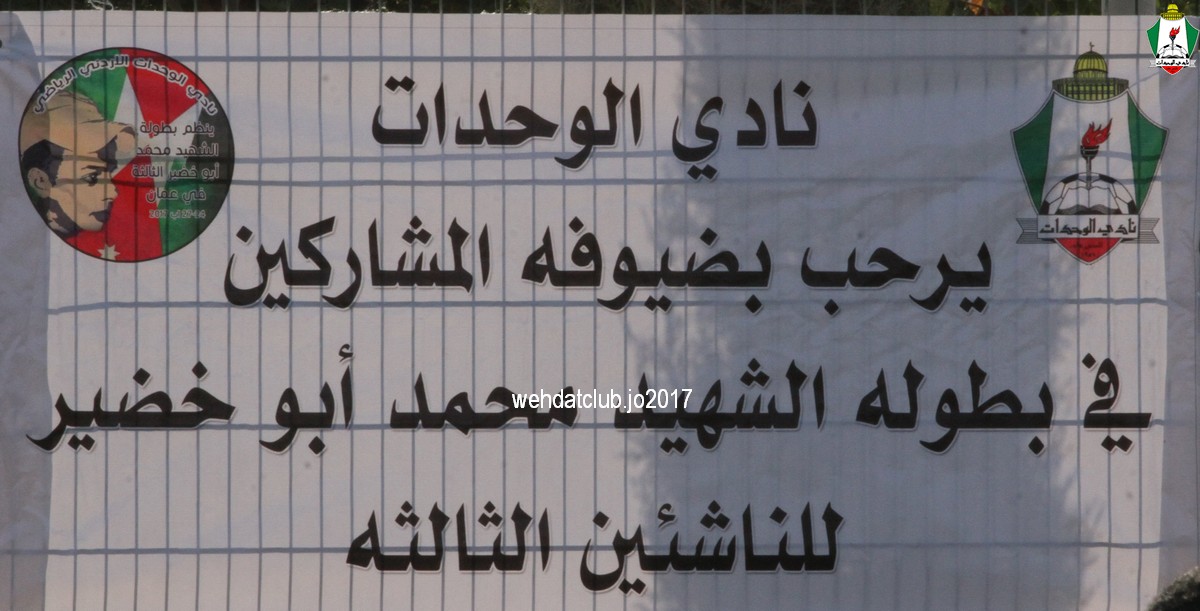 نادي الوحدات
يرحب بضيوفه المشاركين
في بطوله الشهيد محمد أبو خضير
للناشئين الثالثه
نادي الوحدات الأردني الرياضي
ينظم بطولة
الشهيد محمد
أبو خضير الثالثة
في عمان
نادي الوحدات
wehdatclub.jo2017
نادي الوحدات